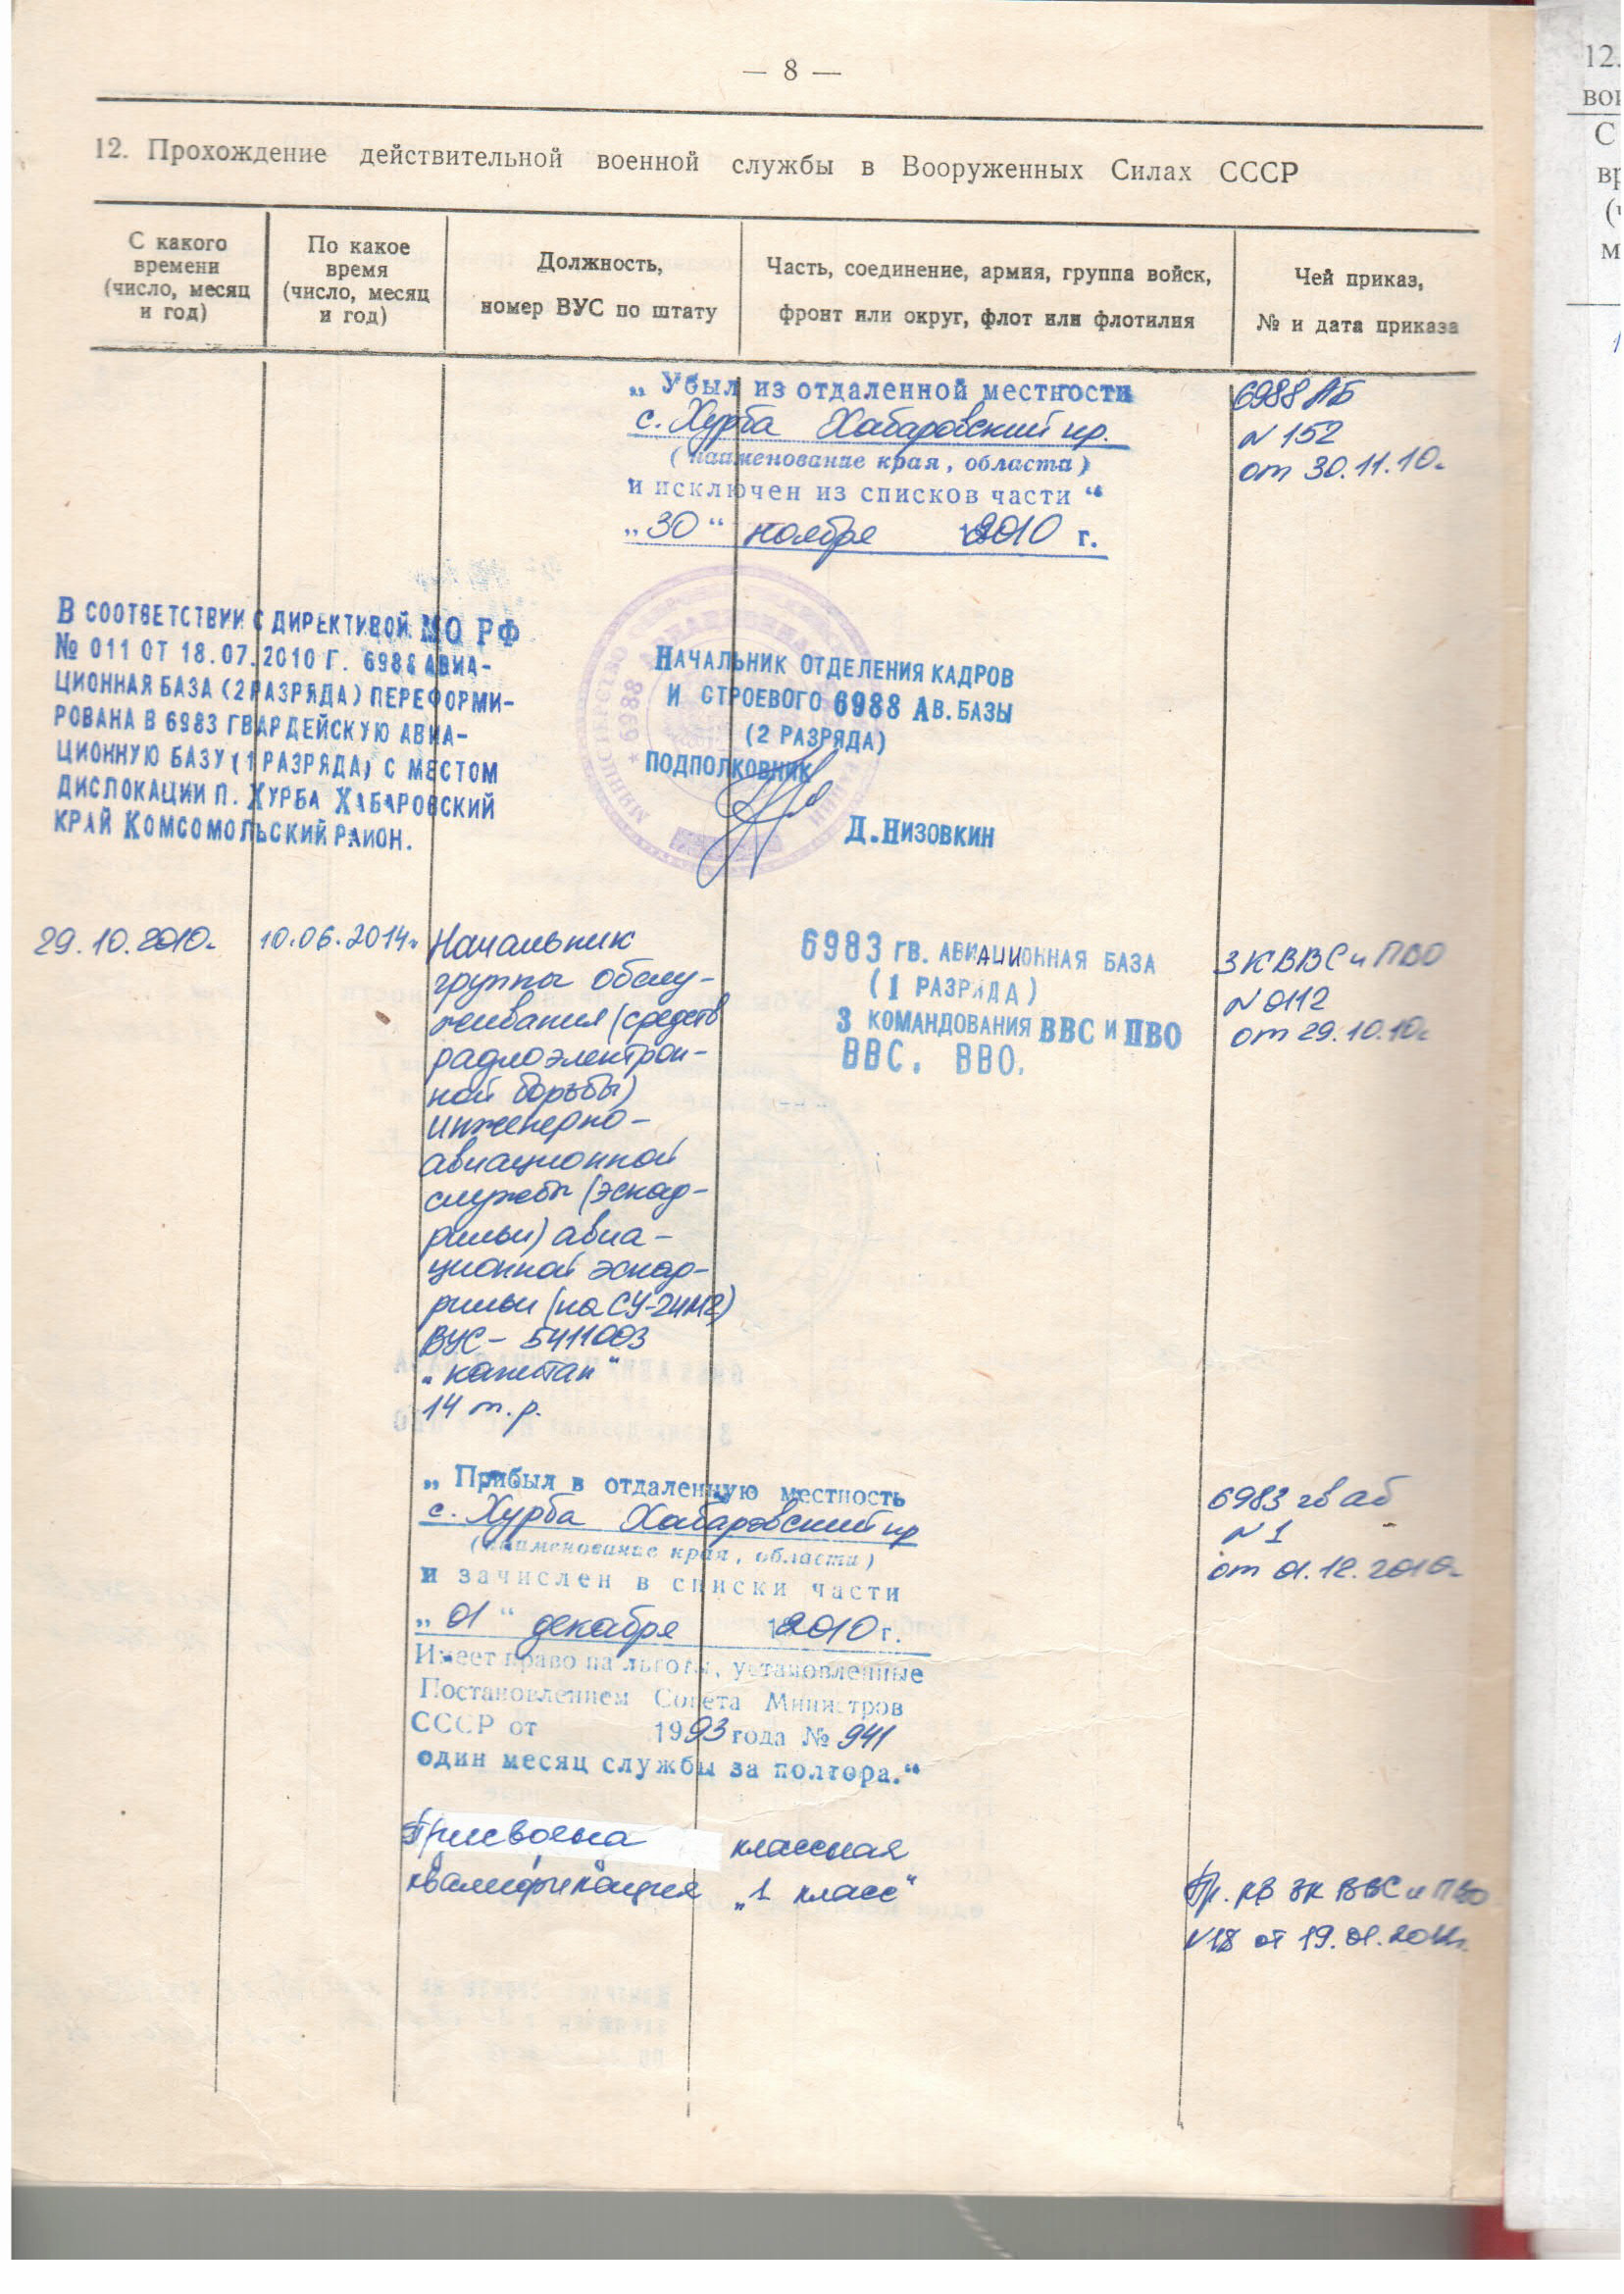 — 8 —
12. Прохождение действительной военной службы в Вооруженных Силах СССР
С какого
времени
(число, месяц
и год)
По какое
время
(число, месяц
и год)
Должность,
номер ВУС по штату
Часть, соединение, армия, группа войск,
фронт или округ, флот или флотилия
Чей приказ,
№ и дата приказа
„ Убыл из отдаленной местности
с. Хурба Хабаровский кр.
(наименование края, области)
и исключен из списков части “
„30“ ноября 2010 г.
6988 АБ
N 152
от 30.11.10г.
В СООТВЕТСТВИИ С ДИРЕКТИВОЙ МО РФ
№ 011 ОТ 18.07.2010 Г. 6988 АВИА-
ЦИОННАЯ БАЗА (2 РАЗРЯДА) ПЕРЕФОРМИ-
РОВАНА В 6983 ГВАРДЕЙСКУЮ АВИА-
ЦИОННУЮ БАЗУ (1 РАЗРЯДА) С МЕСТОМ
ДИСЛОКАЦИИ П. ХУРБА ХАБАРОВСКИЙ
КРАЙ КОМСОМОЛЬСКИЙ РАЙОН.
НАЧАЛЬНИК ОТДЕЛЕНИЯ КАДРОВ
И СТРОЕВОГО 6988 АВ. БАЗЫ
(2 РАЗРЯДА)
ПОДПОЛКОВНИК
Д. НИЗОВКИН
29.10.2010г.
10.06.2014г.
Начальник
группы обслу-
живания (средств
радиоэлектрон-
ной борьбы)
инженерно-
авиационной
службы (эскад-
рильи) авиа-
ционной эскад-
рильи (на СУ-24М2)
ВУС - 5411003
„капитан“
14 т.р.
6983 ГВ. АВИАЦИОННАЯ БАЗА
(1 РАЗРЯДА)
3 КОМАНДОВАНИЯ ВВС И ПВО
ВВС. ВВО.
3 К ВВС и ПВО
N 0112
от 29.10.10г.
„ Прибыл в отдаленную местность
с. Хурба Хабаровский кр
(наименование края, области)
и зачислен в списки части
„ 01 “ декабря 2010 г.
Имеет право на льготы, установленные
Постановлением Совета Министров
СССР от 1993 года № 941
один месяц службы за полтора.“
6983 гв аб
N 1
от 01.12.2010г.
Присвоена классная
квалификация „1 класс“
Пр. 3К ВВС и ПВО
от 19.01.
12.
С